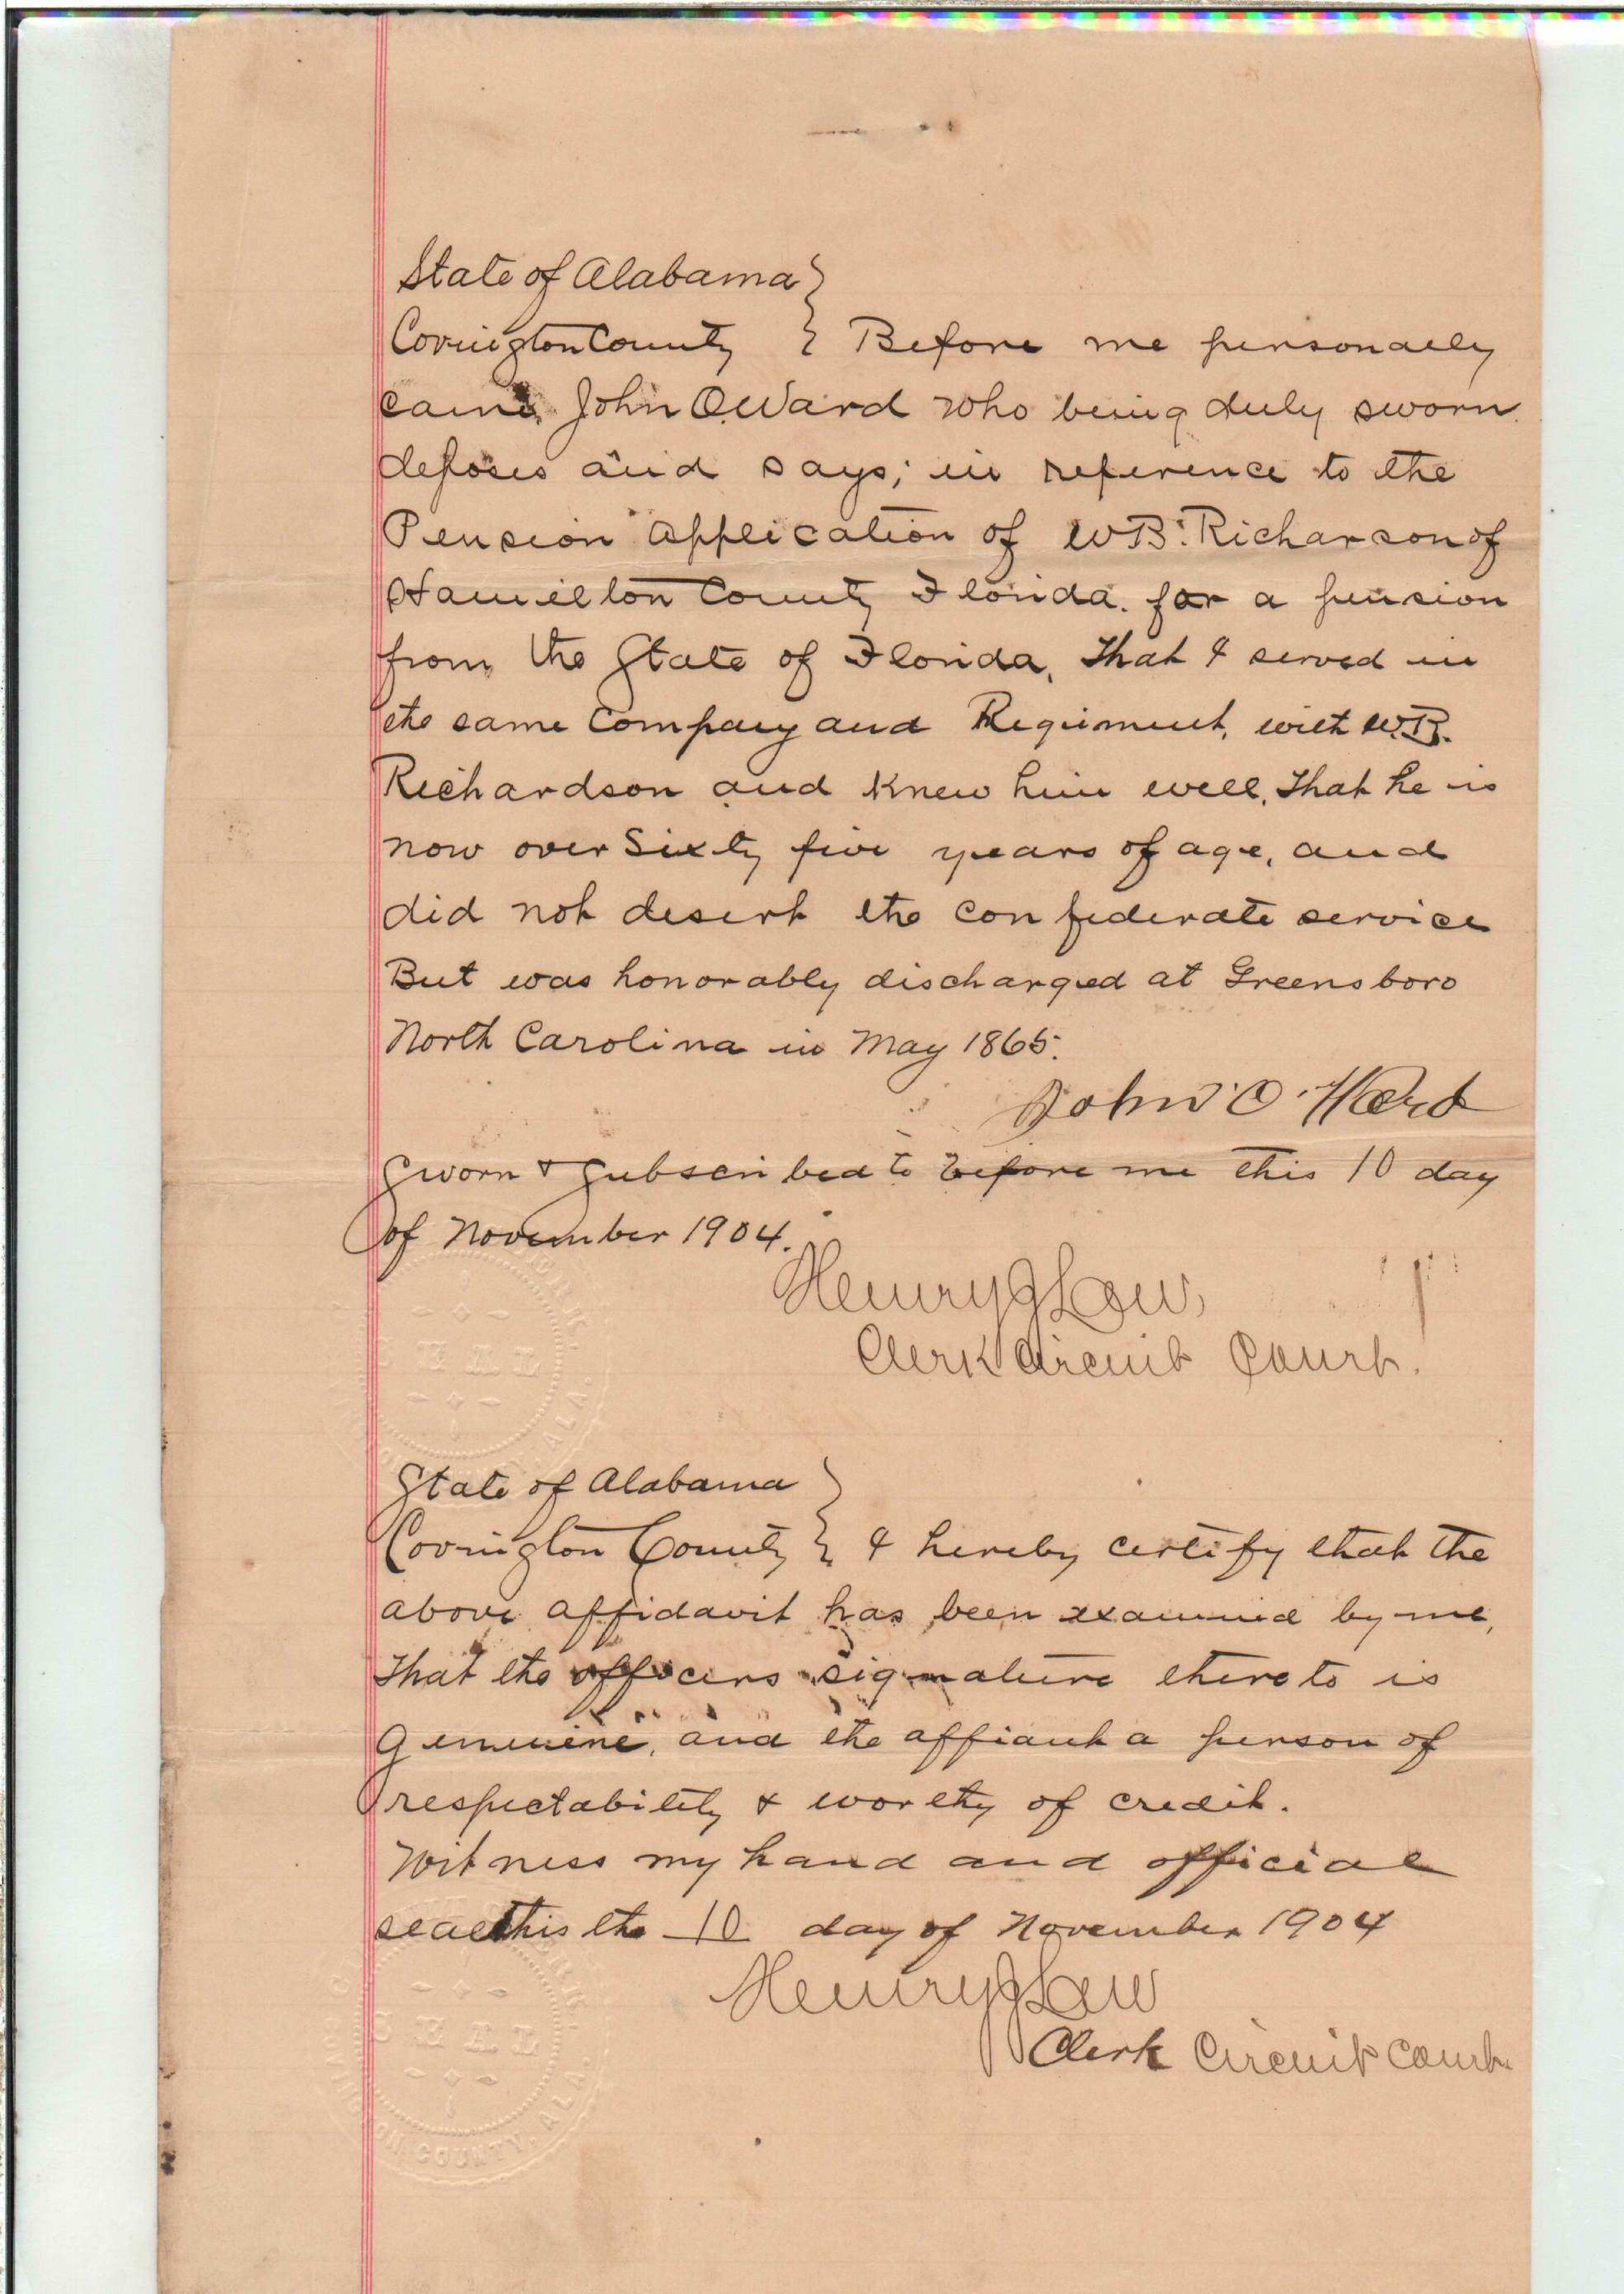 State of Alabama }
Covington County } Before me personally
came John O. Ward who being duly sworn
deposes and says; in reference to the
Pension Application of W B. Richarson of
Hamilton County Florida. for a pension
from the State of Florida, That I served in
the same Company and Regiment, with W.B.
Richardson and knew him well, That he is
now over Sixty five years of age, and
did not desert the confederate service
But was honorably discharged at Greensboro
North Carolina in May 1865.
John O. Ward
Sworn & Subscribed to before me this 10 day
of November 1904.
Henry J Law,
Clerk Circuit Court.
SEAL
COUNTY, ALA.
State of Alabama }
Covington County } I hereby certify that the
above affidavit has been examined by me,
That the officers signature thereto is
Genuine, and the affiant a person of
respectability & worthy of credit.
Witness my hand and official
seal this the 10 day of November 1904
Henry J Law
Clerk Circuit Court.
SEAL
COUNTY, ALA.